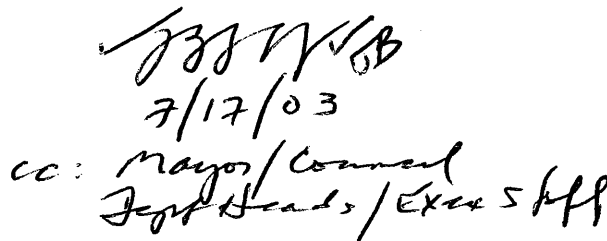 7/17/03
cc: Mayor/Council
Dept Heads/Exec Staff